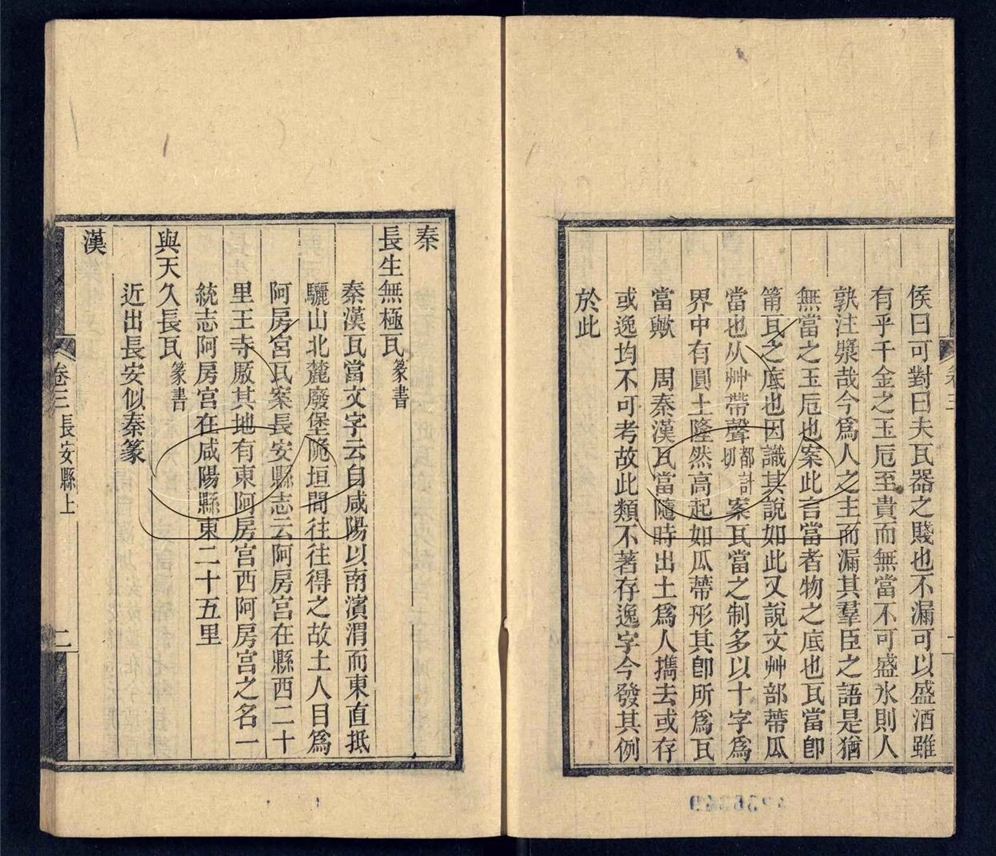 侯曰可對曰夫瓦器之賤也不漏可以盛酒雖
有乎千金之玉卮至貴而無當不可盛水則人
孰注漿哉今爲人之主而漏其羣臣之語是猶
無當之玉卮也案此言當者物之底也瓦當卽
筩瓦之底也因識其說如此又說文艸部蔕瓜
當也从艸帶聲都計切案瓦當之制多以十字爲
界中有圓土隆然高起如瓜蔕形其卽所爲瓦
當歟　周秦漢瓦當隨時出土爲人攜去或存
或逸均不可考故此類不著存逸字今發其例
於此
秦
長生無極瓦篆書
秦漢瓦當文字云自咸陽以南濱渭而東直抵
驪山北麓廢堡陁垣間往往得之故土人目爲
阿房宮瓦案長安縣志云阿房宮在縣西二十
里王寺厫其地有東阿房宮西阿房宮之名一
統志阿房宮在咸陽縣東二十五里
與天久長瓦篆書
近出長安似秦篆
漢
卷三長安縣上
二